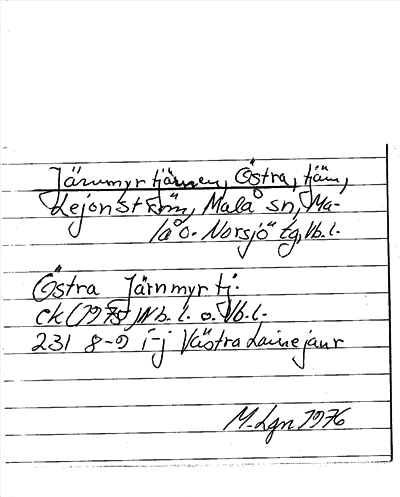 Järnmyrtjärnen, Östra, tjärn,
Lejonström, Malå sn, Ma-
lå o. Norsjö tg, Vb.l.
Östra Järnmyrtj.
ck (1975) Nb.l. o. Vb.l.
231 8-9 i-j Västra Lainejaur
M. Lgn 1976